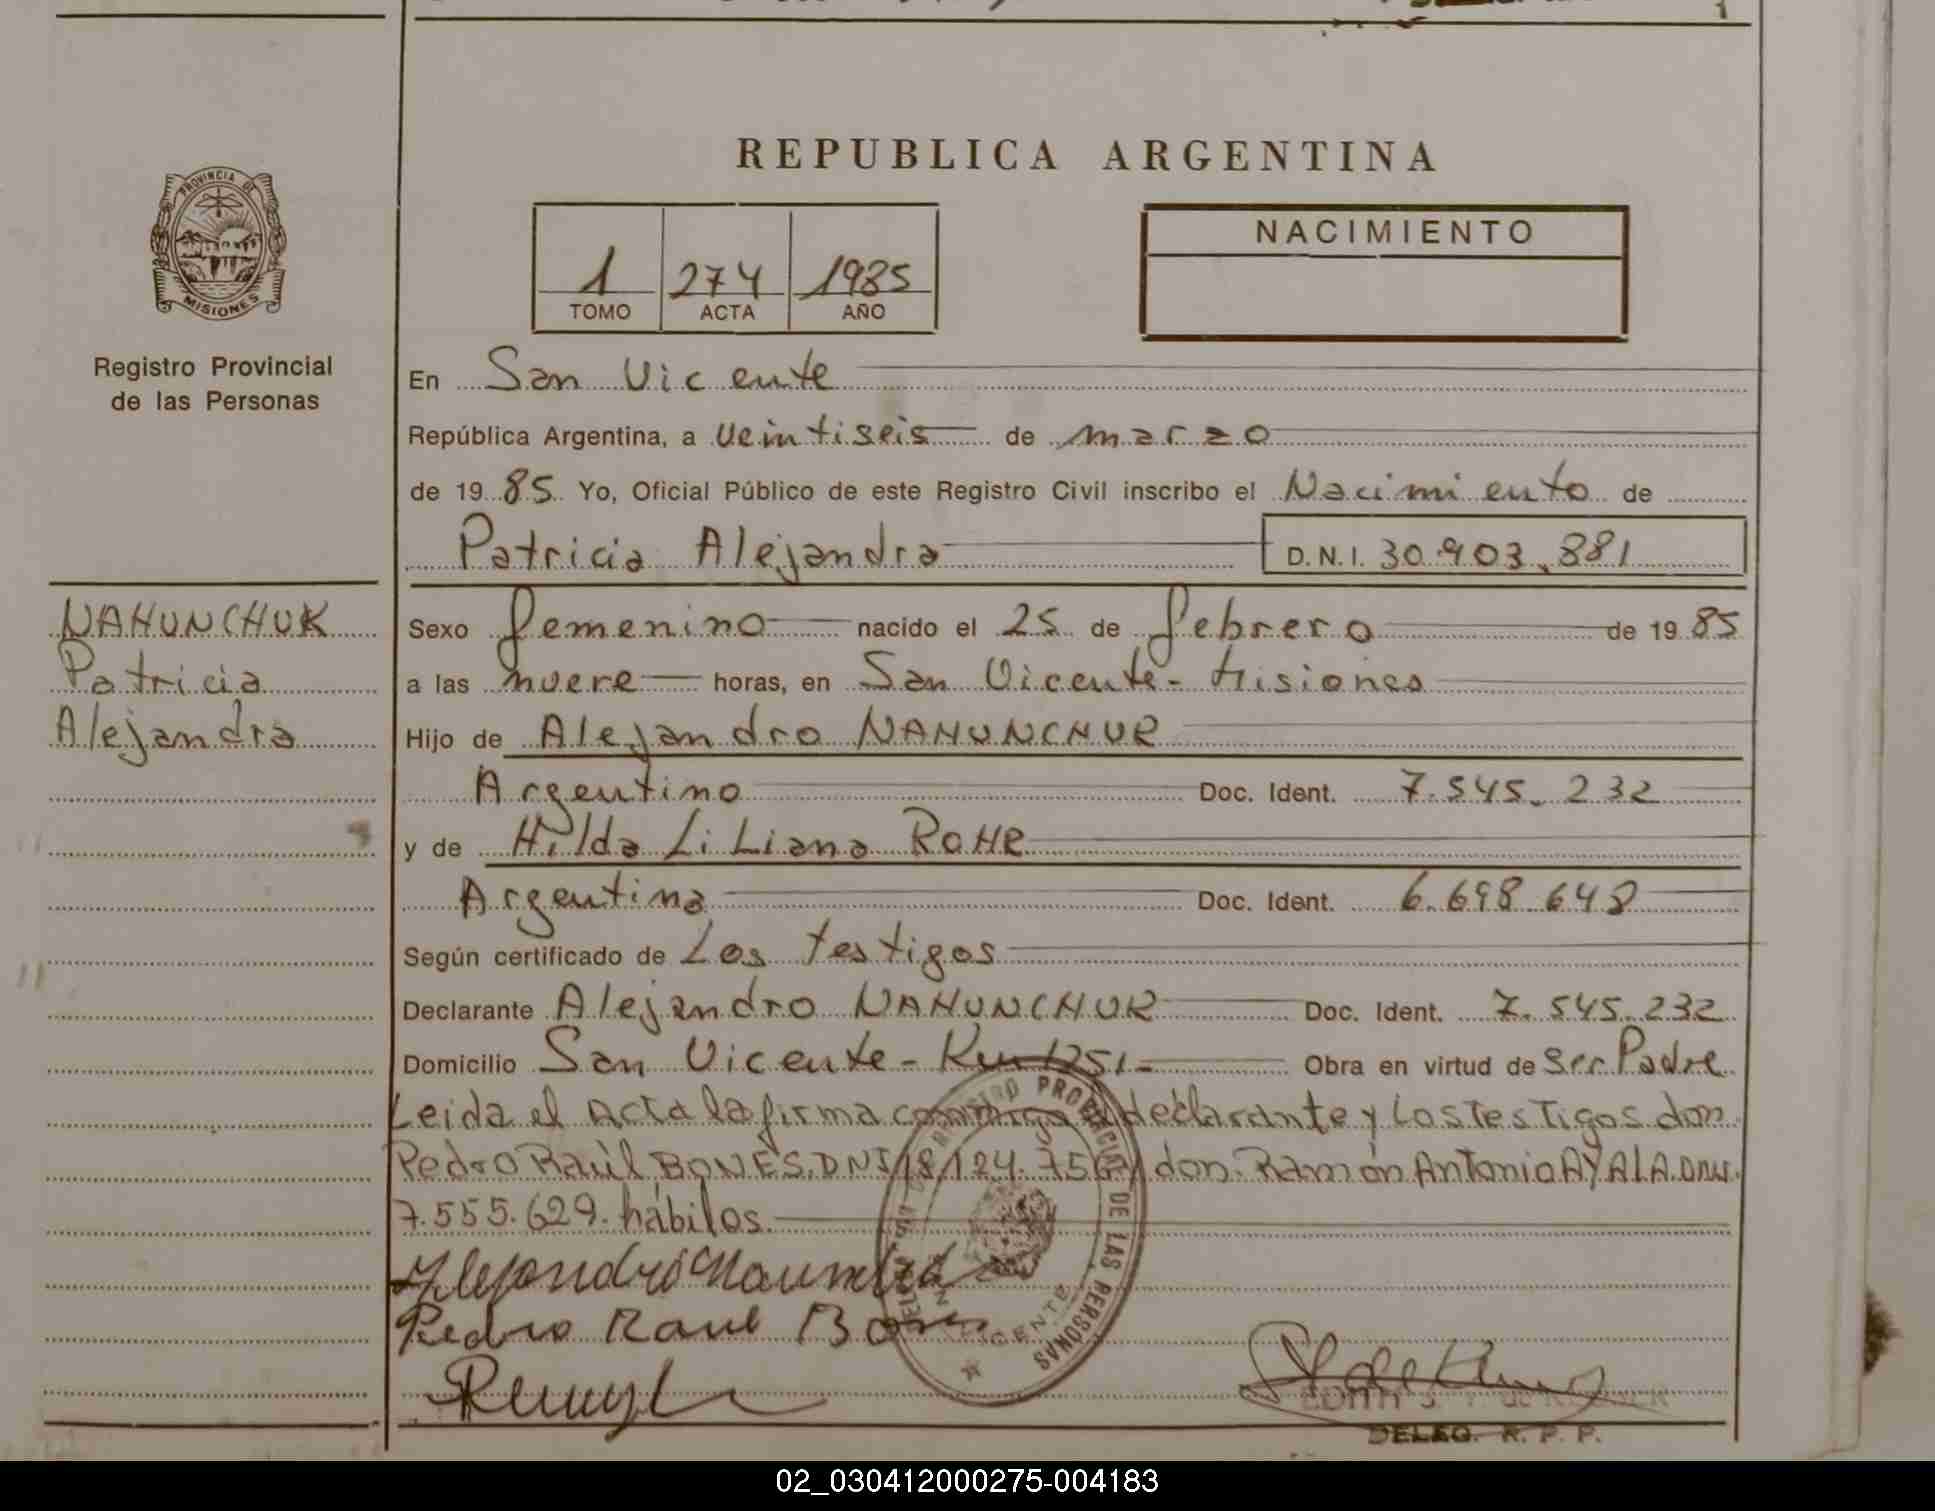 REPUBLICA ARGENTINA
PROVINCIA DE
MISIONES
Registro Provincial
de las Personas
1 274 1985
TOMO ACTA AÑO
NACIMIENTO
En San Vicente
República Argentina, a veintiseis de marzo
de 19 85 Yo, Oficial Público de este Registro Civil inscribo el Nacimiento de
Patricia Alejandra D.N.I. 30.903.881
NAHUNCHUK
Patricia
Alejandra
Sexo femenino nacido el 25 de febrero de 19 85
a las nueve horas, en San Vicente - Misiones
Hijo de Alejandro NAHUNCHUK
Argentino Doc. Ident. 7.545.232
y de Hilda Liliana ROHR
Argentina Doc. Ident. 6.698.648
Según certificado de Los testigos
Declarante Alejandro NAHUNCHUK Doc. Ident. 7.545.232
Domicilio San Vicente - Km 1251 - Obra en virtud de ser Padre
Leida el Acta la firma conmigo el declarante y los Testigos don
Pedro Raúl BONES. DNI 18.124.756 y don Ramón Antonio AYALA. DNI.
7.555.629. hábilos.
REGISTRO PROVINCIAL DE LAS PERSONAS
VICENTE
Pedro Raul Bones
DELEG. R. P. P.
02_030412000275-004183